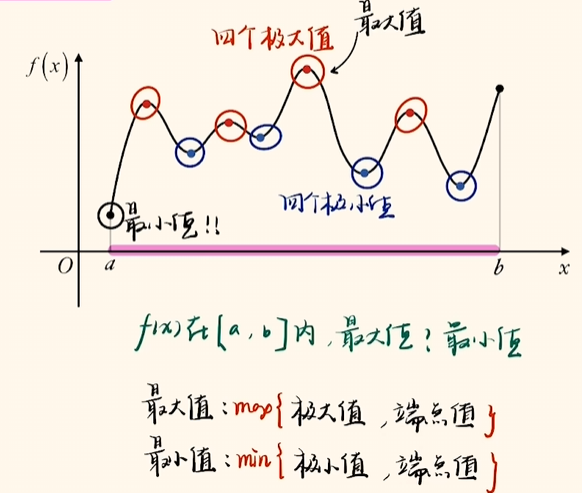 四个极大值
最大值
f(x)
最小值!!
四个极小值
O
a
b
x
f(x)在[a,b]内,最大值?最小值
最大值:max{极大值,端点值}
最小值:min{极小值,端点值}